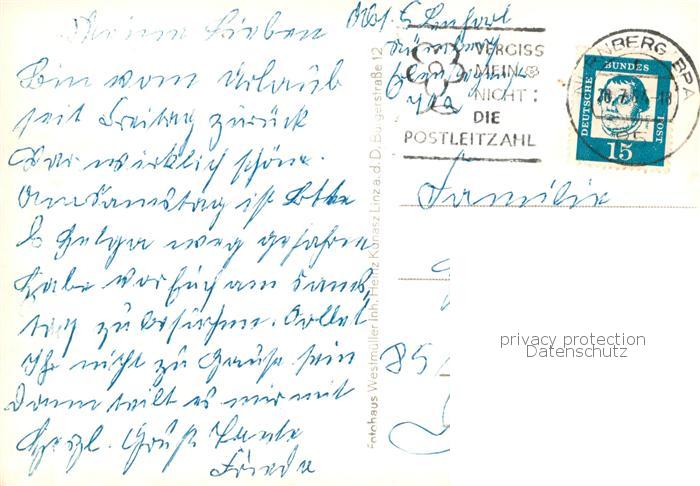 Meine Lieben
Bin vom Urlaub
seit Freitag zurück
War wirklich schön.
Am Samstag ist Lotte
& Helga weg gefahren
Habe vor Euch am Sams-
tag zu besuchen. Solltet
Ihr nicht zu Hause sein
Dann teilt es mir mit
Herzl. Grüß Tante
Frieda
Abs.
VERGISS
MEIN
NICHT:
DIE
POSTLEITZAHL
NBERG BPA
DEUTSCHE BUNDESPOST
15
Familie
85
Fotohaus Westmüller Inh. Heinz Kunasz Linz a. d. D. Bürgerstraße 12
privacy protection
Datenschutz